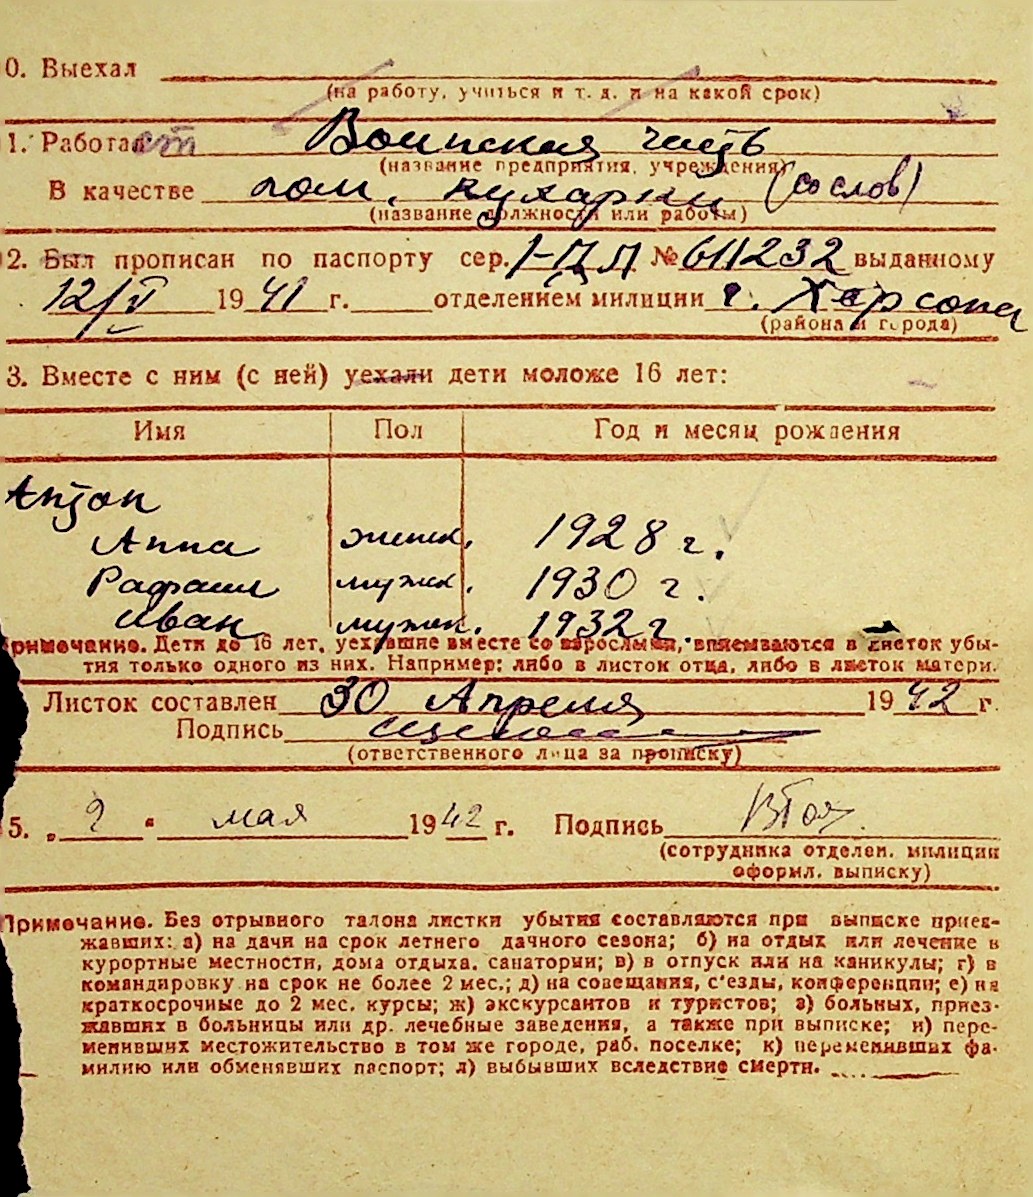 0. Выехал
(на работу, учиться и т. д. и на какой срок)
1. Работает Воинская часть
(название предприятия, учреждения)
В качестве пом. кухарки (со слов)
(название должности или работы)
2. Был прописан по паспорту сер. I-ЦЛ № 611232 выданному
12/V 1941 г. отделением милиции г. Херсона
(района и города)
3. Вместе с ним (с ней) уехали дети моложе 16 лет:
Имя Пол Год и месяц рождения
Антон
Анна женск. 1928 г.
Рафаил мужск. 1930 г.
Иван мужск. 1932 г.
Примечание. Дети до 16 лет, уехавшие вместе со взрослыми, вписываются в листок убы-
тия только одного из них. Например: либо в листок отца, либо в листок матери.
Листок составлен 30 Апреля 1942 г.
Подпись
(ответственного лица за прописку)
5. „2“ мая 1942 г. Подпись
(сотрудника отделен. милиции
оформл. выписку)
Примечание. Без отрывного талона листки убытия составляются при выписке приез-
жавших: а) на дачи на срок летнего дачного сезона; б) на отдых или лечение в
курортные местности, дома отдыха, санатории; в) в отпуск или на каникулы; г) в
командировку на срок не более 2 мес.; д) на совещания, с'езды, конференции; е) на
краткосрочные до 2 мес. курсы; ж) экскурсантов и туристов; з) больных, приез-
жавших в больницы или др. лечебные заведения, а также при выписке; и) пере-
менивших местожительство в том же городе, раб. поселке; к) переменивших фа-
милию или обменявших паспорт; л) выбывших вследствие смерти.